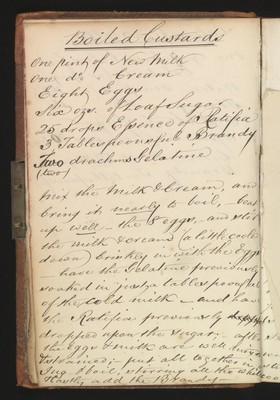 Boiled Custards
One pint of New Milk
One do. Cream
Eight Eggs
Six ozs. of Loaf Sugar
25 drops Essence of Ratifia
3 Tablespoonsful Brandy
Two drachms Gelatine
(two)
Mix the Milk & Cream, and
bring it nearly to boil, - beat
up well - the 8 eggs, - and stir
the milk & cream (a little cooled
down) briskly in with the Eggs
- have the Gelatine previously
soaked in just a tablespoonful
of the cold milk - and have
the Ratifia previously
dropped upon the sugar; after
the Eggs & milk are well
& strained; - put all together in
Jug & boil, stirring all the while
Lastly, add the Brandy